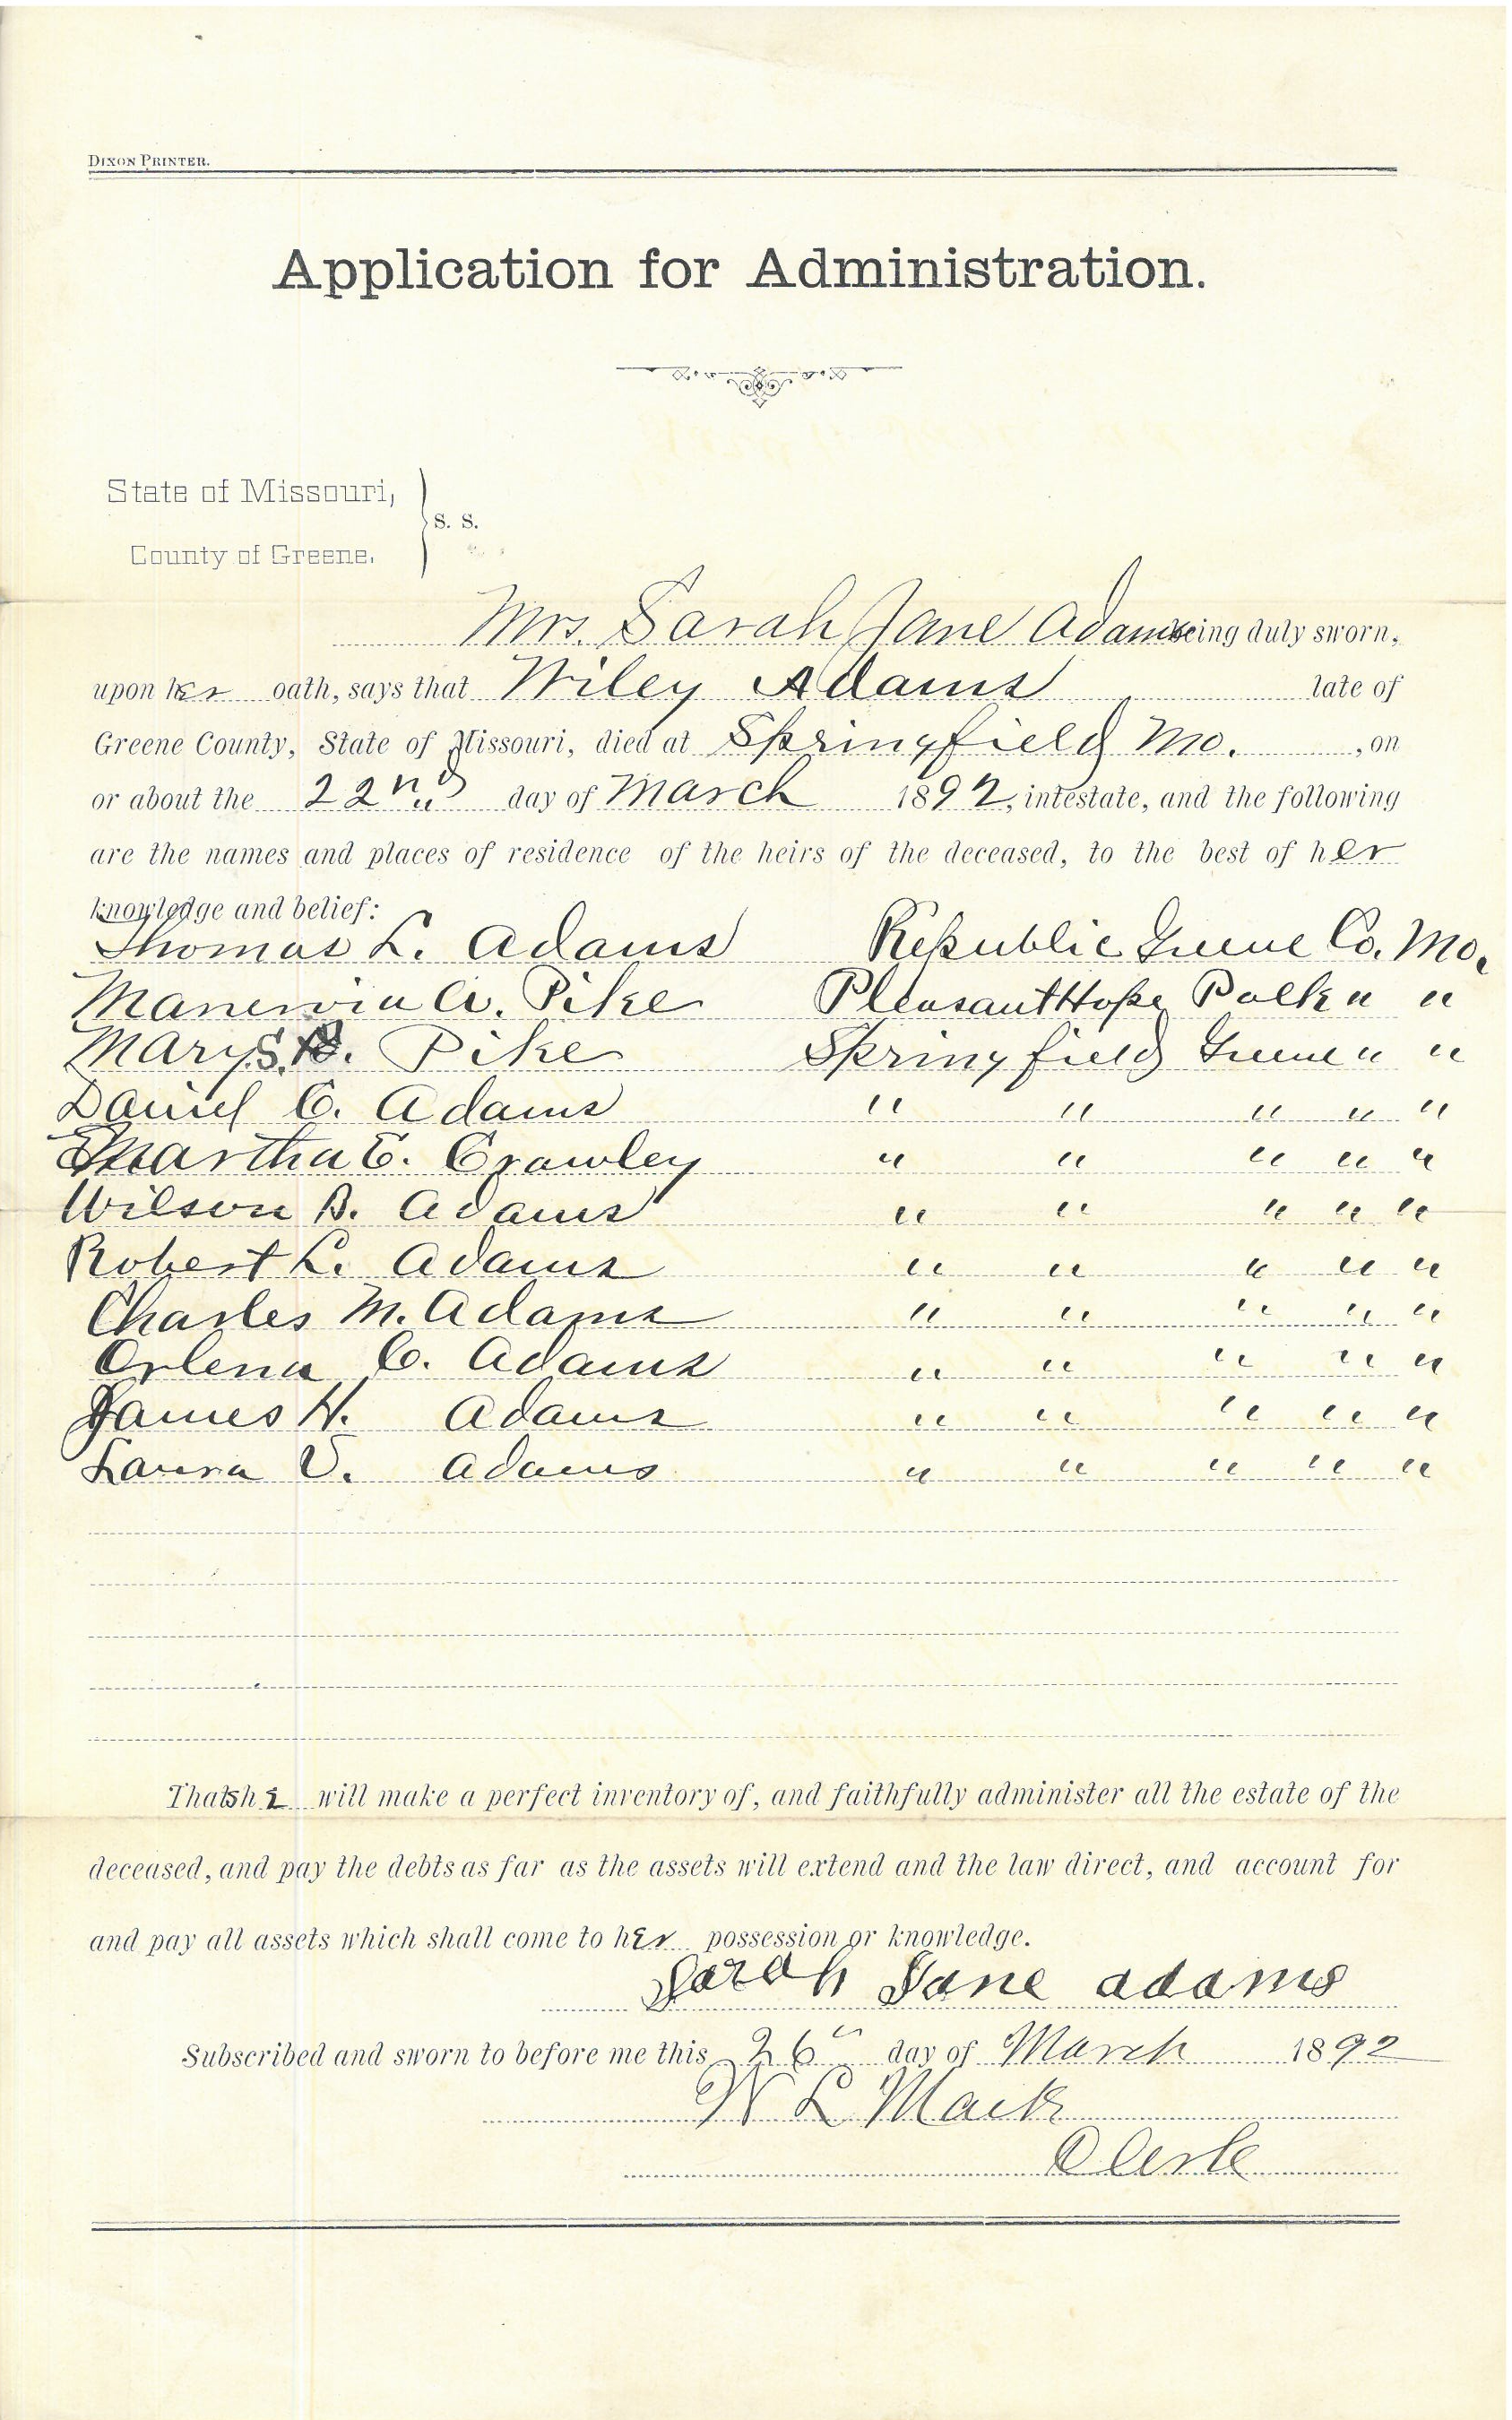 DIXON PRINTER.
Application for Administration.
State of Missouri,
S. S.
County of Greene.
Mrs. Sarah Jane Adams being duly sworn,
upon her oath, says that Wiley Adams late of
Greene County, State of Missouri, died at Springfield Mo. , on
or about the 22nd day of March 1892, intestate, and the following
are the names and places of residence of the heirs of the deceased, to the best of her
knowledge and belief:
Thomas L. Adams Republic Greene Co. Mo.
Manervia A. Pike Pleasant Hope Polk " "
Mary S. Pike Springfield Greene " "
Daniel C. Adams " " " " "
Martha E. Crawley " " " " "
Wilson B. Adams " " " " "
Robert L. Adams " " " " "
Charles M. Adams " " " " "
Orlena C. Adams " " " " "
James H. Adams " " " " "
Laura V. Adams " " " " "
That she will make a perfect inventory of, and faithfully administer all the estate of the
deceased, and pay the debts as far as the assets will extend and the law direct, and account for
and pay all assets which shall come to her possession or knowledge.
Sarah Jane adams
Subscribed and sworn to before me this 26" day of March 1892
W L Mack
Clerk